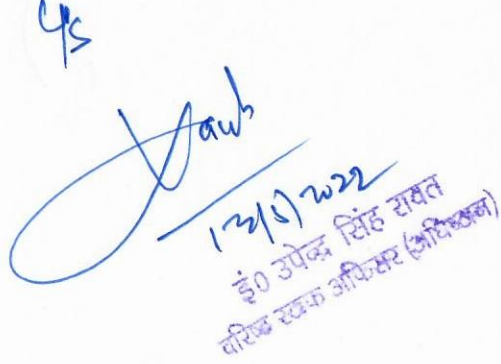 4/5
12/5/2022
इं० उपेन्द्र सिंह रावत
वरिष्ठ स्टाफ अफिसर (अधिष्ठान)